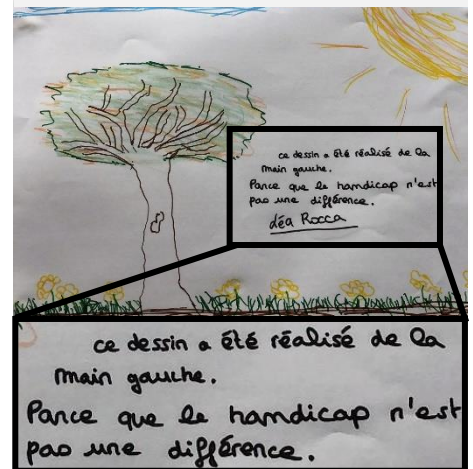 ce dessin a été réalisé de la
main gauche.
Parce que le handicap n'est
pas une différence.
Léa Rocca
ce dessin a été réalisé de la
main gauche.
Parce que le handicap n'est
pas une différence.